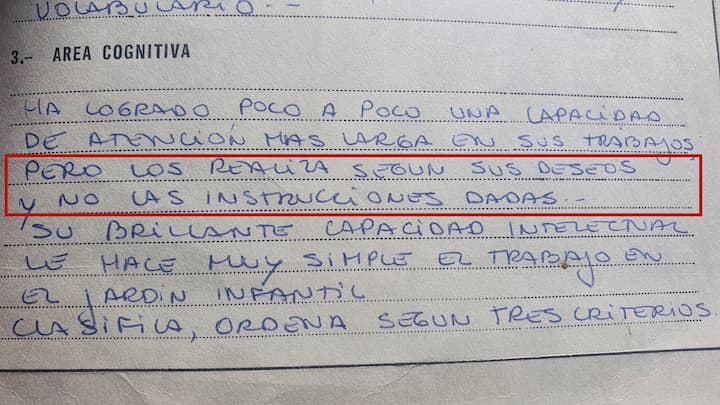 VOLABULARIO.-
3.- AREA COGNITIVA
HA LOGRADO POCO A POCO UNA CAPACIDAD
DE ATENCIÓN MAS LARGA EN SUS TRABAJOS,
PERO LOS REALIZA SEGUN SUS DESEOS
Y NO LAS INSTRUCCIONES DADAS.-
SU BRILLANTE CAPACIDAD INTELECTUAL
LE HACE MUY SIMPLE EL TRABAJO EN
EL JARDIN INFANTIL
CLASIFICA, ORDENA SEGUN TRES CRITERIOS.